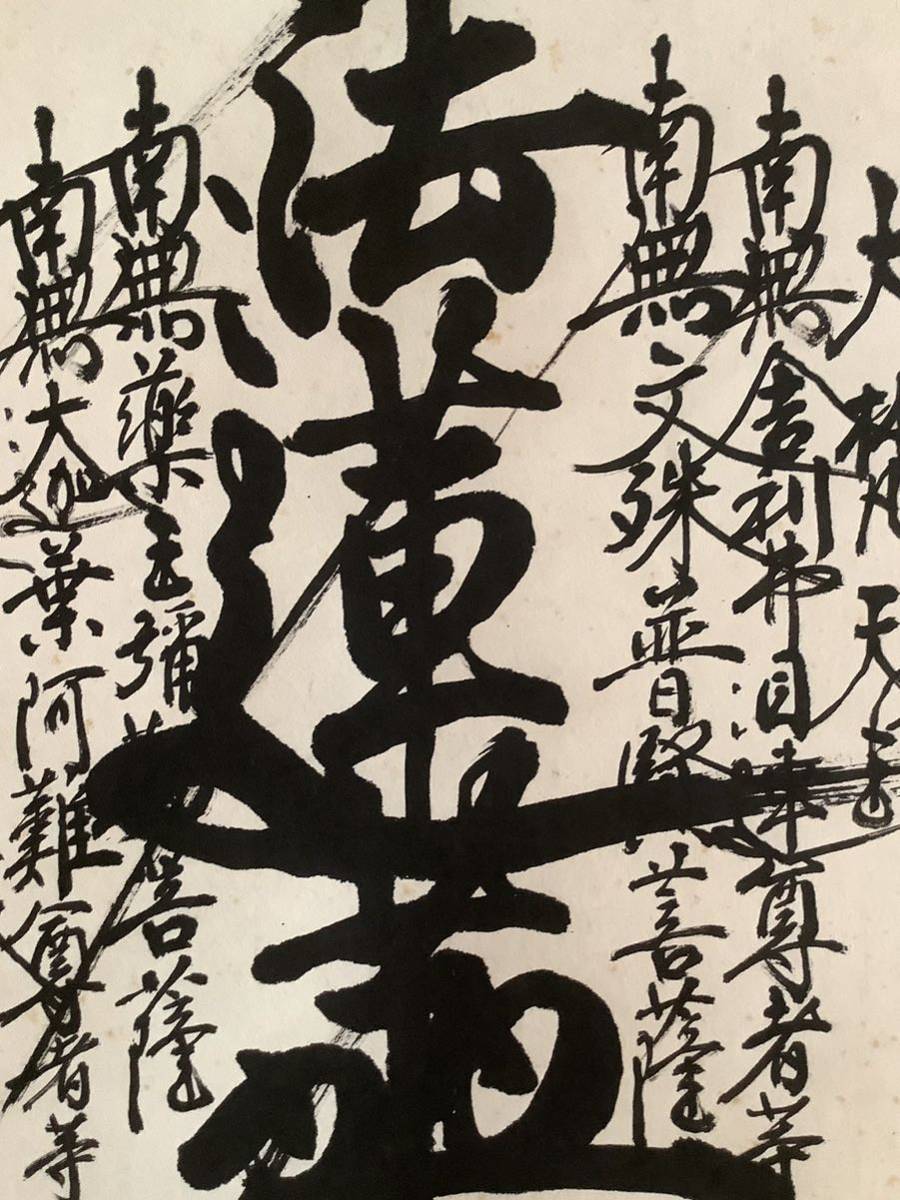 大梵天王
南無舎利弗目連尊者等
南無文殊普賢菩薩
法蓮華
南無薬王彌菩薩
南無大迦葉阿難尊者等